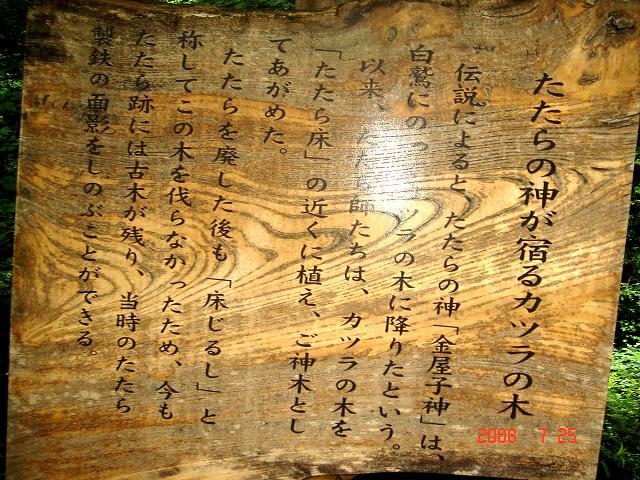 たたらの神が宿るカツラの木
伝説によると、たたらの神「金屋子神」は、
白鷺にの ツラの木に降りたという。
以来、たたら師たちは、カツラの木を
「たたら床」の近くに植え、ご神木とし
てあがめた。
たたらを廃した後も「床じるし」と
称してこの木を伐らなかったため、今も
たたら跡には古木が残り、当時のたたら
製鉄の面影をしのぶことができる。
2008 7 25